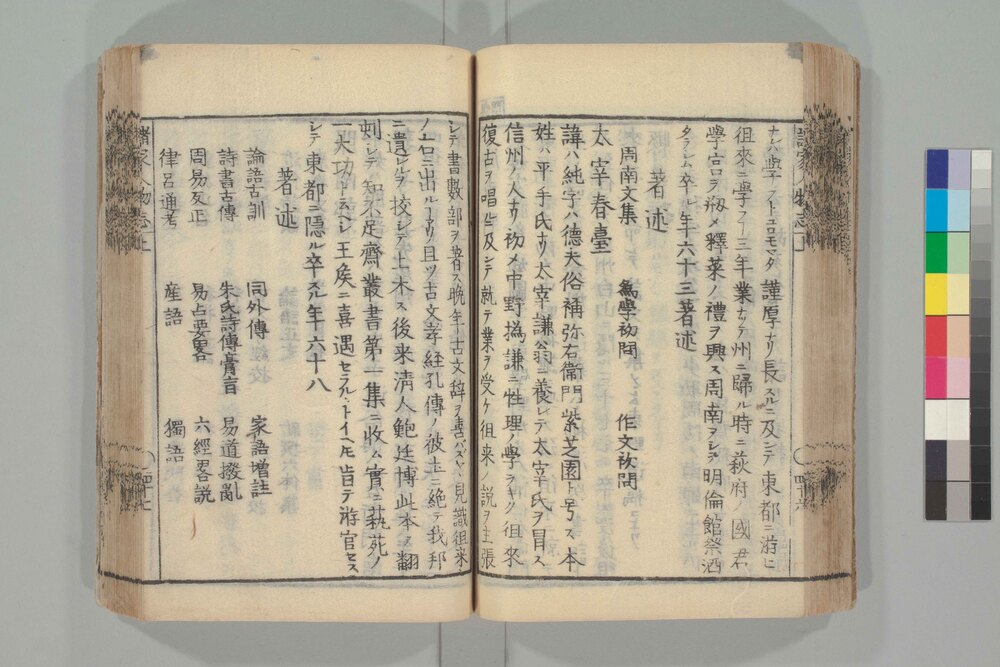 學フトユロモマダ謹厚ナリ長スルニ及ンデ東都ニ游ヒ
徂來ニ學フ丁三年業ナッテ州ニ歸ル時ニ萩府ノ國君
學宮ロヲ剏メ釋菜ノ禮ヲ興ス周南ヲシテ明倫館祭酒
タラシム卒ル年六十三著述
著述
周南文集 爲學初問 作文初問
太宰春臺
諱ハ純字ハ德夫俗稱弥右衞門紫芝園ト号ス本
姓ハ平手氏ナリ太宰謙翁ニ養レテ太宰氏ヲ冒ス
信州ノ人ナリ初メ中野撝謙ニ性理ノ學ヲキク徂來
復古ヲ唱ルニ及ンテ就テ業ヲ受ケ徂来ノ説ヲ主張
シテ書數部ヲ著ス晩年古文辞ヲ喜バズ見識徂来
ノ右ニ出ル丁アリ且ツ古文孝経孔傳ノ彼土ニ絶テ我邦
ニ遺レルヲ校シテ上木ス後来清人鮑廷博此本ヲ翻
刺シテ知不足齋叢書第一集ニ收ム實ニ藝苑ノ
一大功ト云ヘシ王矦ニ喜遇セラルトイヘ𪜈肯テ游官セス
シテ東都ニ隠ル卒スル年六十八
著述
論語古訓 同外傳 家語増註
詩書古傳 朱氏詩傳膏盲 易道撥亂
周易反正 易占要畧 六經畧説
律呂通考 産語 獨語
諸家人物志上
四十七
諸家人物志上
四十六